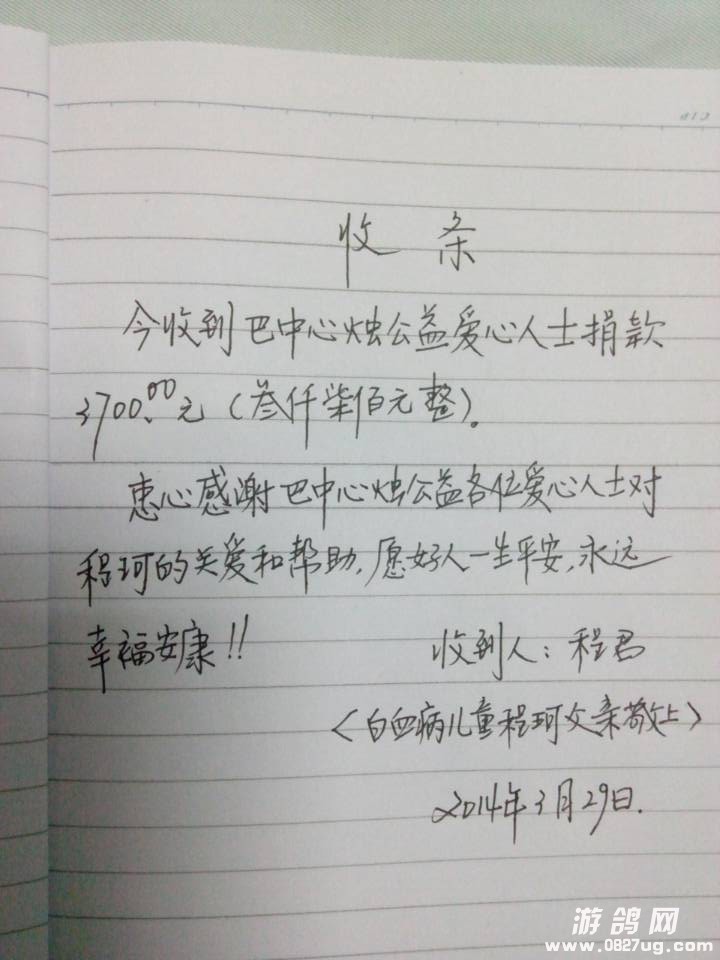 收 条
今收到巴中心烛公益爱心人士捐款
3700.00元(叁仟柒佰元整)。
衷心感谢巴中心烛公益各位爱心人士对
程珂的关爱和帮助,愿好人一生平安,永远
幸福安康!!  收到人:程君
〈白血病儿童程珂父亲敬上〉
2014年3月29日.
游鸽网
www.0827ug.com